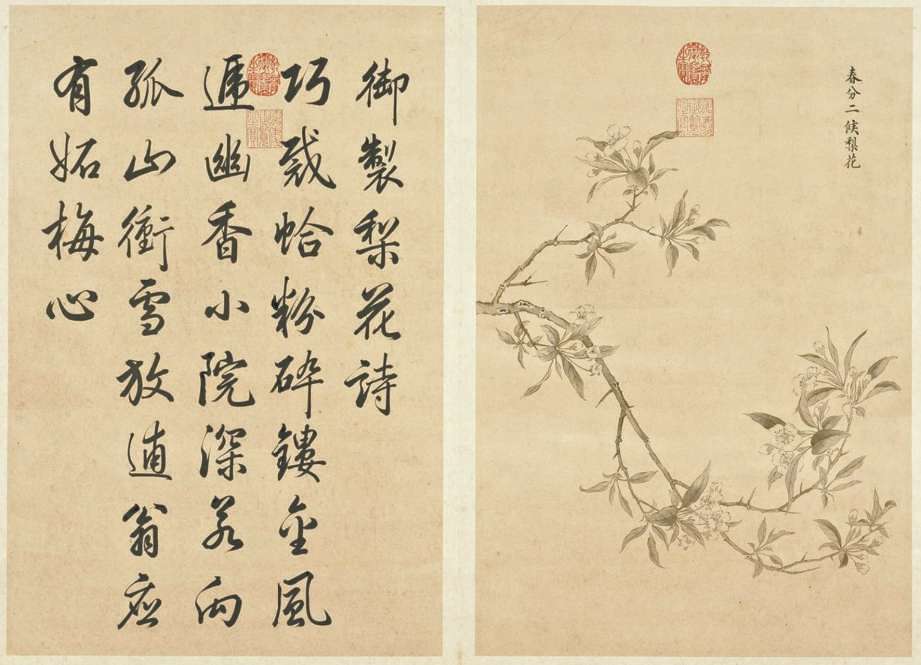 春分二候梨花
御製梨花詩
巧裁蛤粉碎鏤金風
遞幽香小院深若向
孤山衝雪放逋翁應
有妬梅心